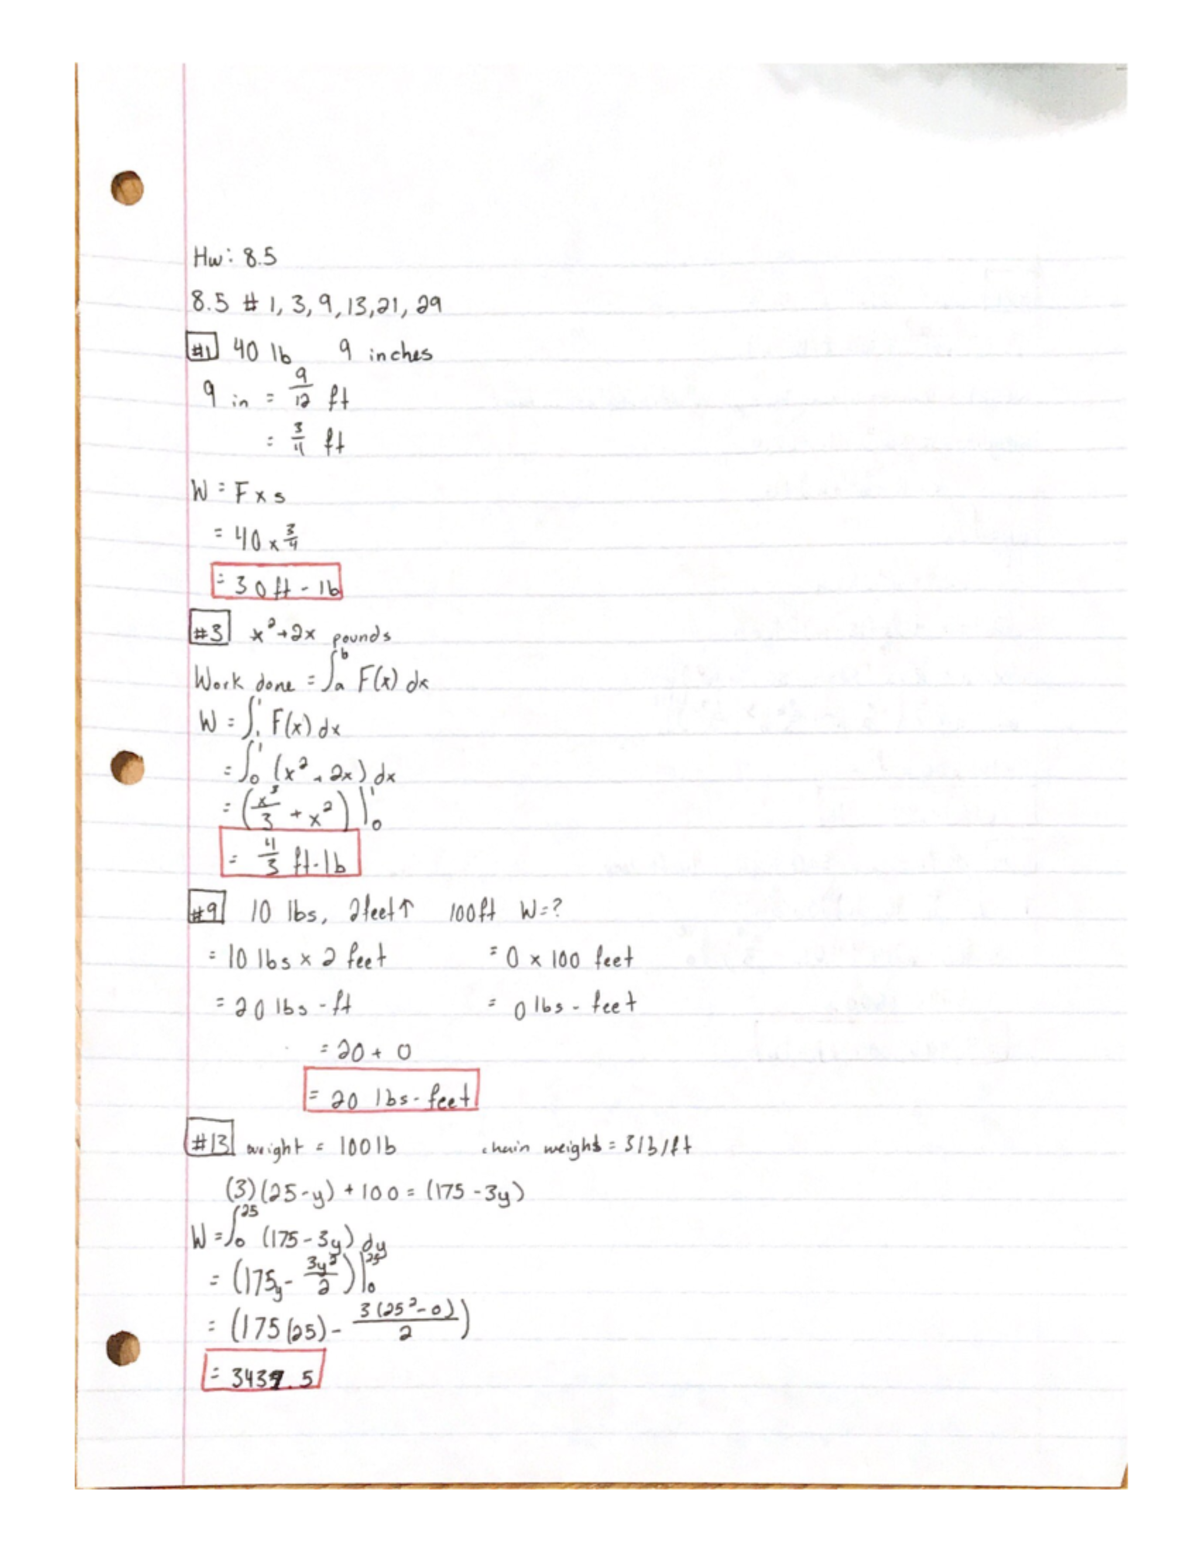 Hw: 8.5
8.5 # 1, 3, 9, 13, 21, 29
#1 40 lb 9 inches
9 in = 9/12 ft
= 3/4 ft
W = F x s
= 40 x 3/4
= 30 ft - lb
#3 x²+2x pounds
Work done = ∫_a^b F(x) dx
W = ∫_1^1 F(x) dx
= ∫_0^1 (x² + 2x) dx
= (x³/3 + x²) |_0^1
= 4/3 ft-lb
#9 10 lbs, 2 feet↑ 100ft W=?
= 10 lbs x 2 feet = 0 x 100 feet
= 20 lbs - ft = 0 lbs - feet
= 20 + 0
= 20 lbs - feet
#13 weight = 100 lb chain weight = 3 lb/ft
(3)(25-y) + 100 = (175 - 3y)
W = ∫_0^25 (175 - 3y) dy
= (175y - 3y²/2) |_0^25
= (175(25) - 3(25²-0)/2)
= 3437.5